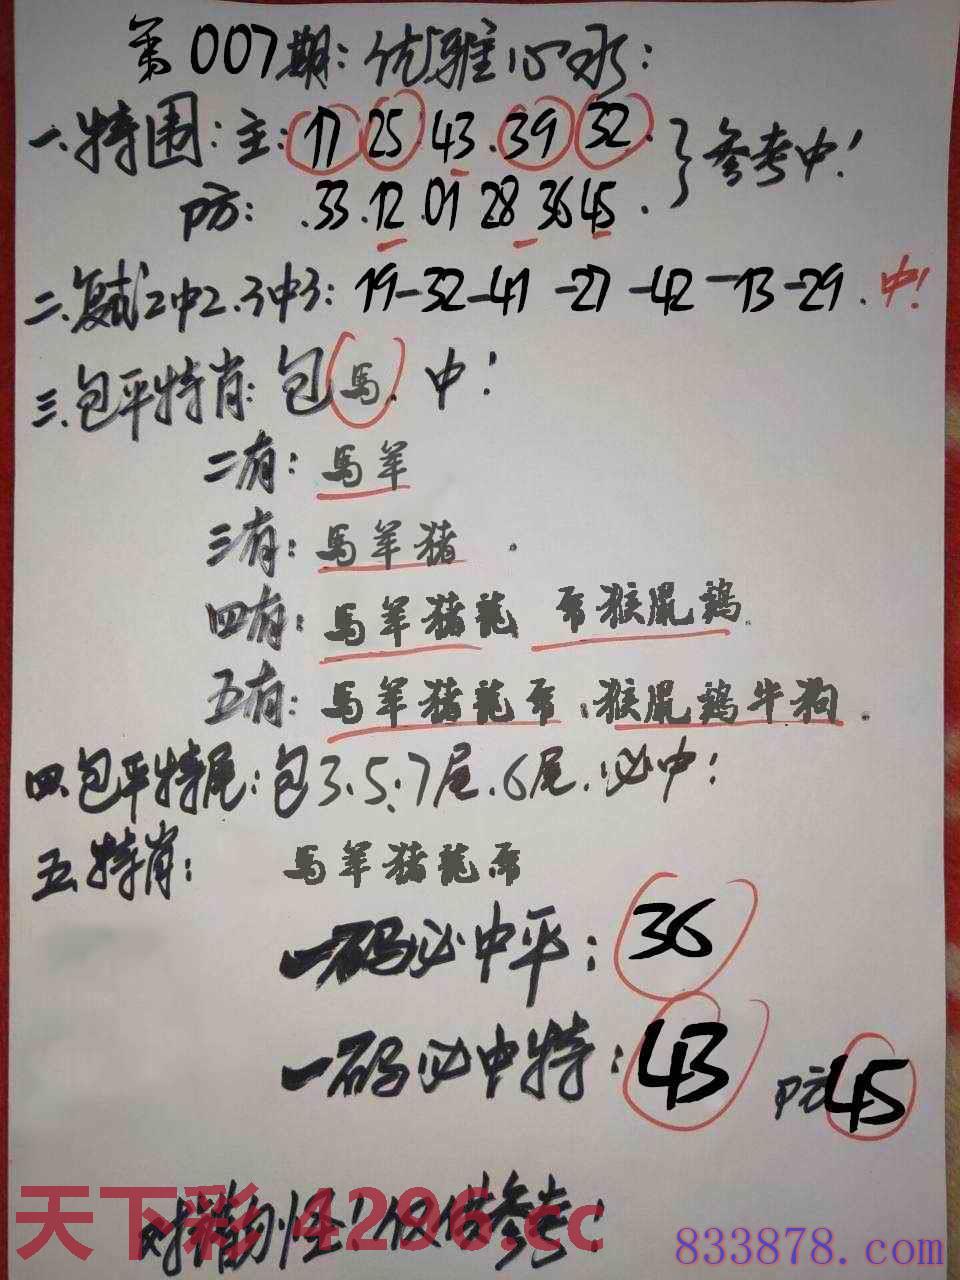 第007期：优雅心水：
一.特围：主：17 25 43.39 32.
}参考中！
防：.33.12.01 28 36 45.
二.复试2中2.3中3：19-32-41-27-42-13-29.中！
三.包平特肖：包馬.中！
二有：馬羊
三有：馬羊猪.
四有：馬羊猪龍 帋猴鼠鶏.
五有：馬羊猪龍帋.猴鼠鶏牛狗.
四.包平特尾：包3.5.7尾.6尾.必中！
五.特肖：馬羊猪龍帋
一码必中平：36
一码必中特：43 防45
对猜勿怪！仅供参考！
天下彩 4296.cc
833878.com